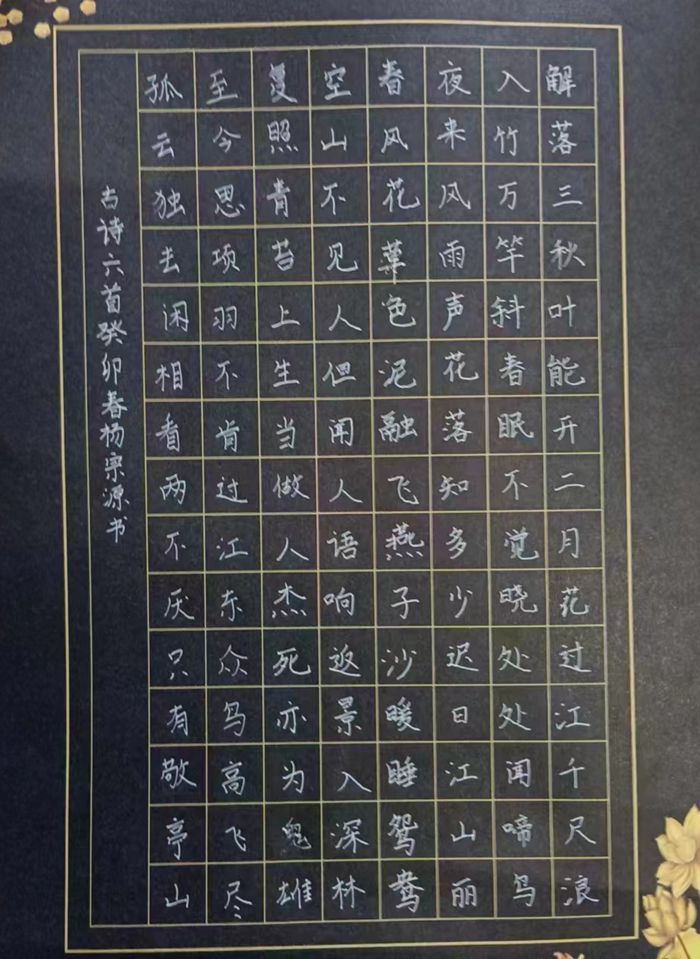 解落三秋叶能开二月花过江千尺浪
入竹万竿斜春眠不觉晓处处闻啼鸟
夜来风雨声花落知多少迟日江山丽
春风花草色泥融飞燕子沙暖睡鸳鸯
空山不见人但闻人语响返景入深林
复照青苔上生当做人杰死亦为鬼雄
至今思项羽不肯过江东众鸟高飞尽
孤云独去闲相看两不厌只有敬亭山
古诗六首癸卯春杨宗源书